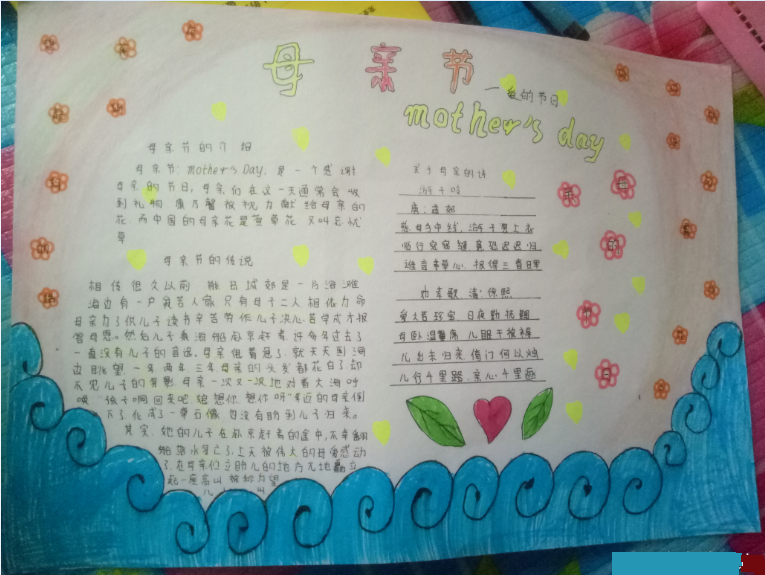 母亲节
一爱的节日
mother's day
母亲节的介绍
母亲节: mother's Day. 是一个感谢
母亲的节日,母亲们在这一天通常会收
到礼物 康乃馨被视为献给母亲的
花 而中国的母亲花是萱草花 又叫忘忧
草
母亲节的传说
相传很久以前 城郊是一片海滩
海边有一户贫苦人家 只有母子二人相依为命
母亲为了供儿子读书辛苦劳作 儿子决心苦学成才报
答母恩。然后儿子乘海船赴京赶考 许多年过去了
一直没有儿子的音迅 母亲 就天天到海
边眺望 一年两年三年母亲的头发都花白了 却
不见儿子的 母亲一次又一次地对着大海呼
唤 "孩子啊回来吧,娘想你想你呀" 母亲倒
下了化成了一尊石像 也没有盼到儿子归来。
其实,她的儿子在赴京赶考的途中,不幸翻
船落水身亡了 上天被伟大的母爱感动
了 在母亲伫立盼儿的地方无地矗立
起一座高山 被称为望
儿 叫
关于母亲的诗
游子吟
唐:孟郊
慈母手中线 游子身上衣
临行密密缝 意恐迟迟归
谁言寸草心 报得三春晖
劝孝歌 清·徐熙
爱大昔珍宝 日夜勤抚鞠
母卧湿簟席 儿眠干被褥
儿出未归来 倚门何以烛
儿行千里路 亲心千里逐